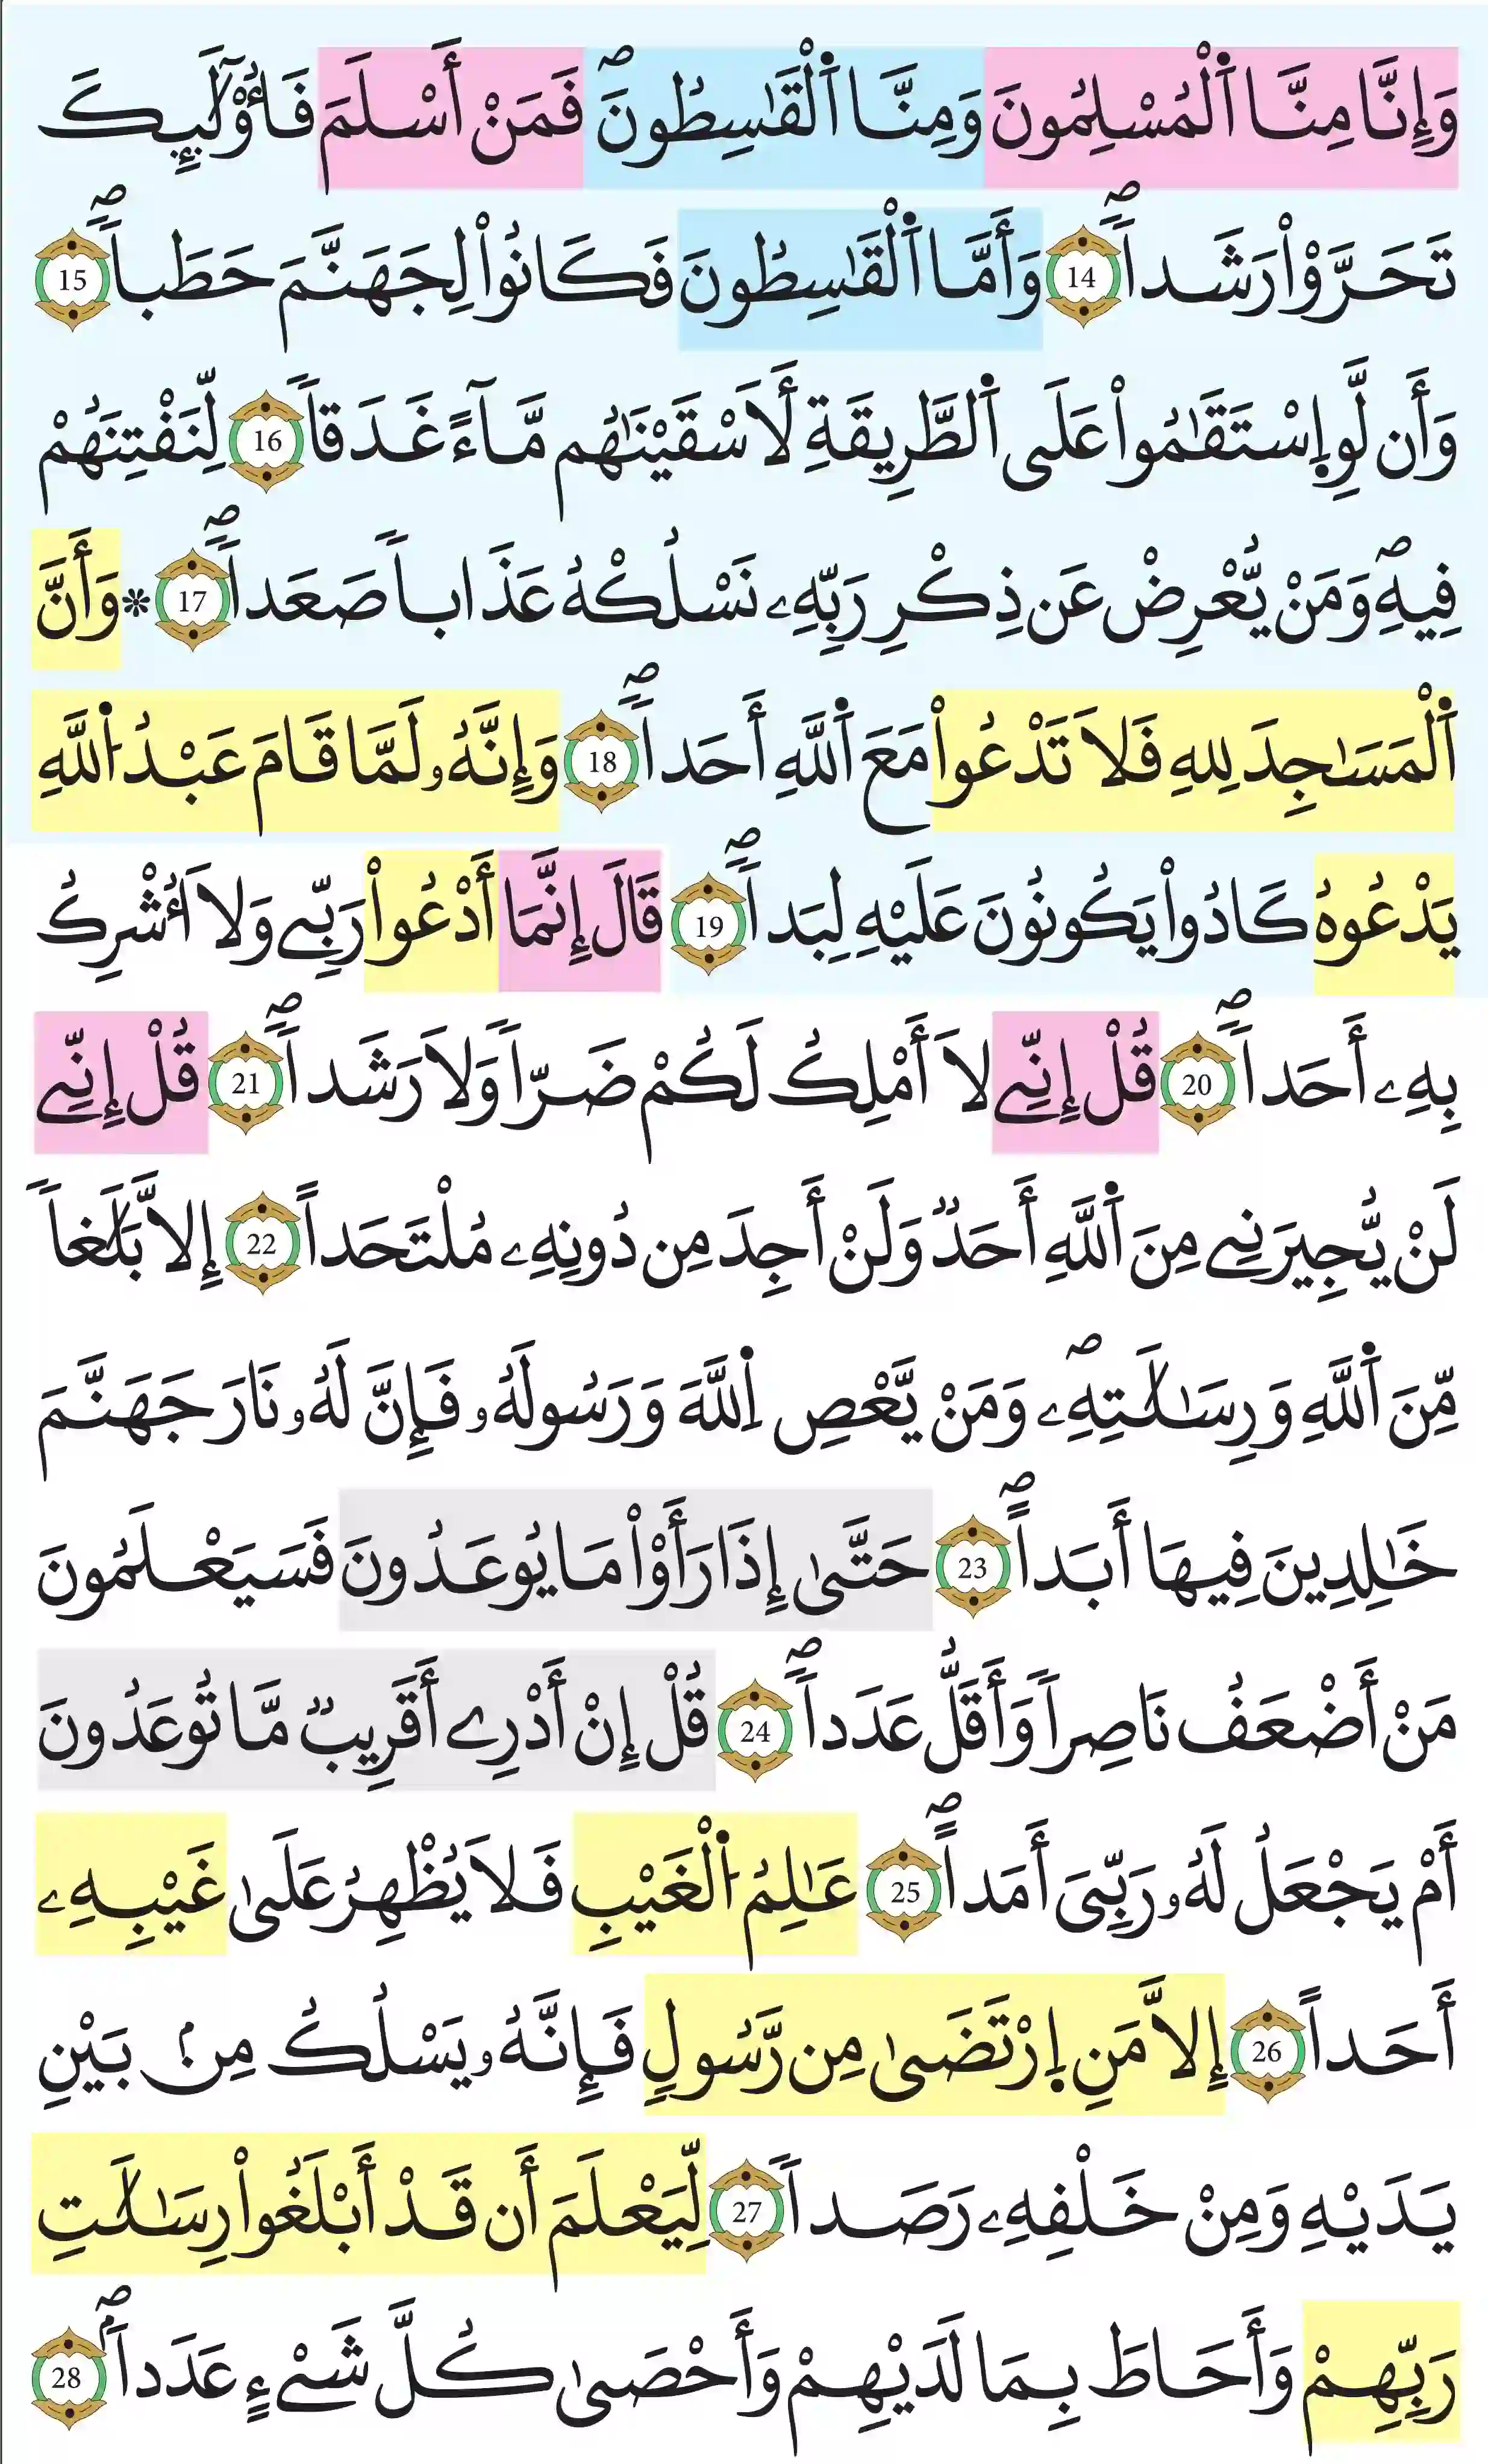 وَإِنَّا مِنَّا اَ۬لْمُسْلِمُونَ وَمِنَّا اَ۬لْقَٰسِطُونَۖ فَمَنْ أَسْلَمَ فَأُوْلَٰٓئِكَ
تَحَرَّوْاْ رَشَداٗۖ 14 وَأَمَّا اَ۬لْقَٰسِطُونَ فَكَانُواْ لِجَهَنَّمَ حَطَباٗۖ 15
وَأَن لَّوِ اِ۪سْتَقَٰمُواْ عَلَى اَ۬لطَّرِيقَةِ لَأَسْقَيْنَٰهُم مَّآءً غَدَقاٗ 16 لِّنَفْتِنَهُمْ
فِيهِۖ وَمَنْ يُّعْرِضْ عَن ذِكْرِ رَبِّهِۦ نَسْلُكْهُ عَذَاباٗ صَعَداٗۖ 17 * وَأَنَّ
اَ۬لْمَسَٰجِدَ لِلهِ فَلَا تَدْعُواْ مَعَ اَ۬للَّهِ أَحَداٗۖ 18 وَإِنَّهُۥ لَمَّا قَامَ عَبْدُ اُ۬للَّهِ
يَدْعُوهُ كَادُواْ يَكُونُونَ عَلَيْهِ لِبَداٗۖ 19 قَالَ إِنَّمَا أَدْعُواْ رَبِّے وَلَا أُشْرِكُ
بِهِۦ أَحَداٗۖ 20 قُلْ إِنِّے لَا أَمْلِكُ لَكُمْ ضَرّاٗ وَلَا رَشَداٗۖ 21 قُلْ إِنِّے
لَنْ يُّجِيرَنِے مِنَ اَ۬للَّهِ أَحَدٞ وَلَنْ أَجِدَ مِن دُونِهِۦ مُلْتَحَداً 22 إِلَّا بَلَٰغاٗ
مِّنَ اَ۬للَّهِ وَرِسَٰلَٰتِهِۦۖ وَمَنْ يَّعْصِ اِ۬للَّهَ وَرَسُولَهُۥ فَإِنَّ لَهُۥ نَارَ جَهَنَّمَ
خَٰلِدِينَ فِيهَا أَبَداًۖ 23 حَتَّىٰ إِذَا رَأَوْاْ مَا يُوعَدُونَ فَسَيَعْلَمُونَ
مَنْ أَضْعَفُ نَاصِراٗ وَأَقَلُّ عَدَداٗۖ 24 قُلْ إِنْ أَدْرِے أَقَرِيبٞ مَّا تُوعَدُونَ
أَمْ يَجْعَلُ لَهُۥ رَبِّىَ أَمَداًۖ 25 عَٰلِمُ اُ۬لْغَيْبِ فَلَا يُظْهِرُ عَلَىٰ غَيْبِهِۦ
أَحَداً 26 إِلَّا مَنِ اِ۪رْتَضَىٰ مِن رَّسُولٖ فَإِنَّهُۥ يَسْلُكُ مِنۢ بَيْنِ
يَدَيْهِ وَمِنْ خَلْفِهِۦ رَصَداٗ 27 لِّيَعْلَمَ أَن قَدْ أَبْلَغُواْ رِسَٰلَٰتِ
رَبِّهِمْ وَأَحَاطَ بِمَا لَدَيْهِمْ وَأَحْصَىٰ كُلَّ شَےْءٍ عَدَداَۢۖ 28